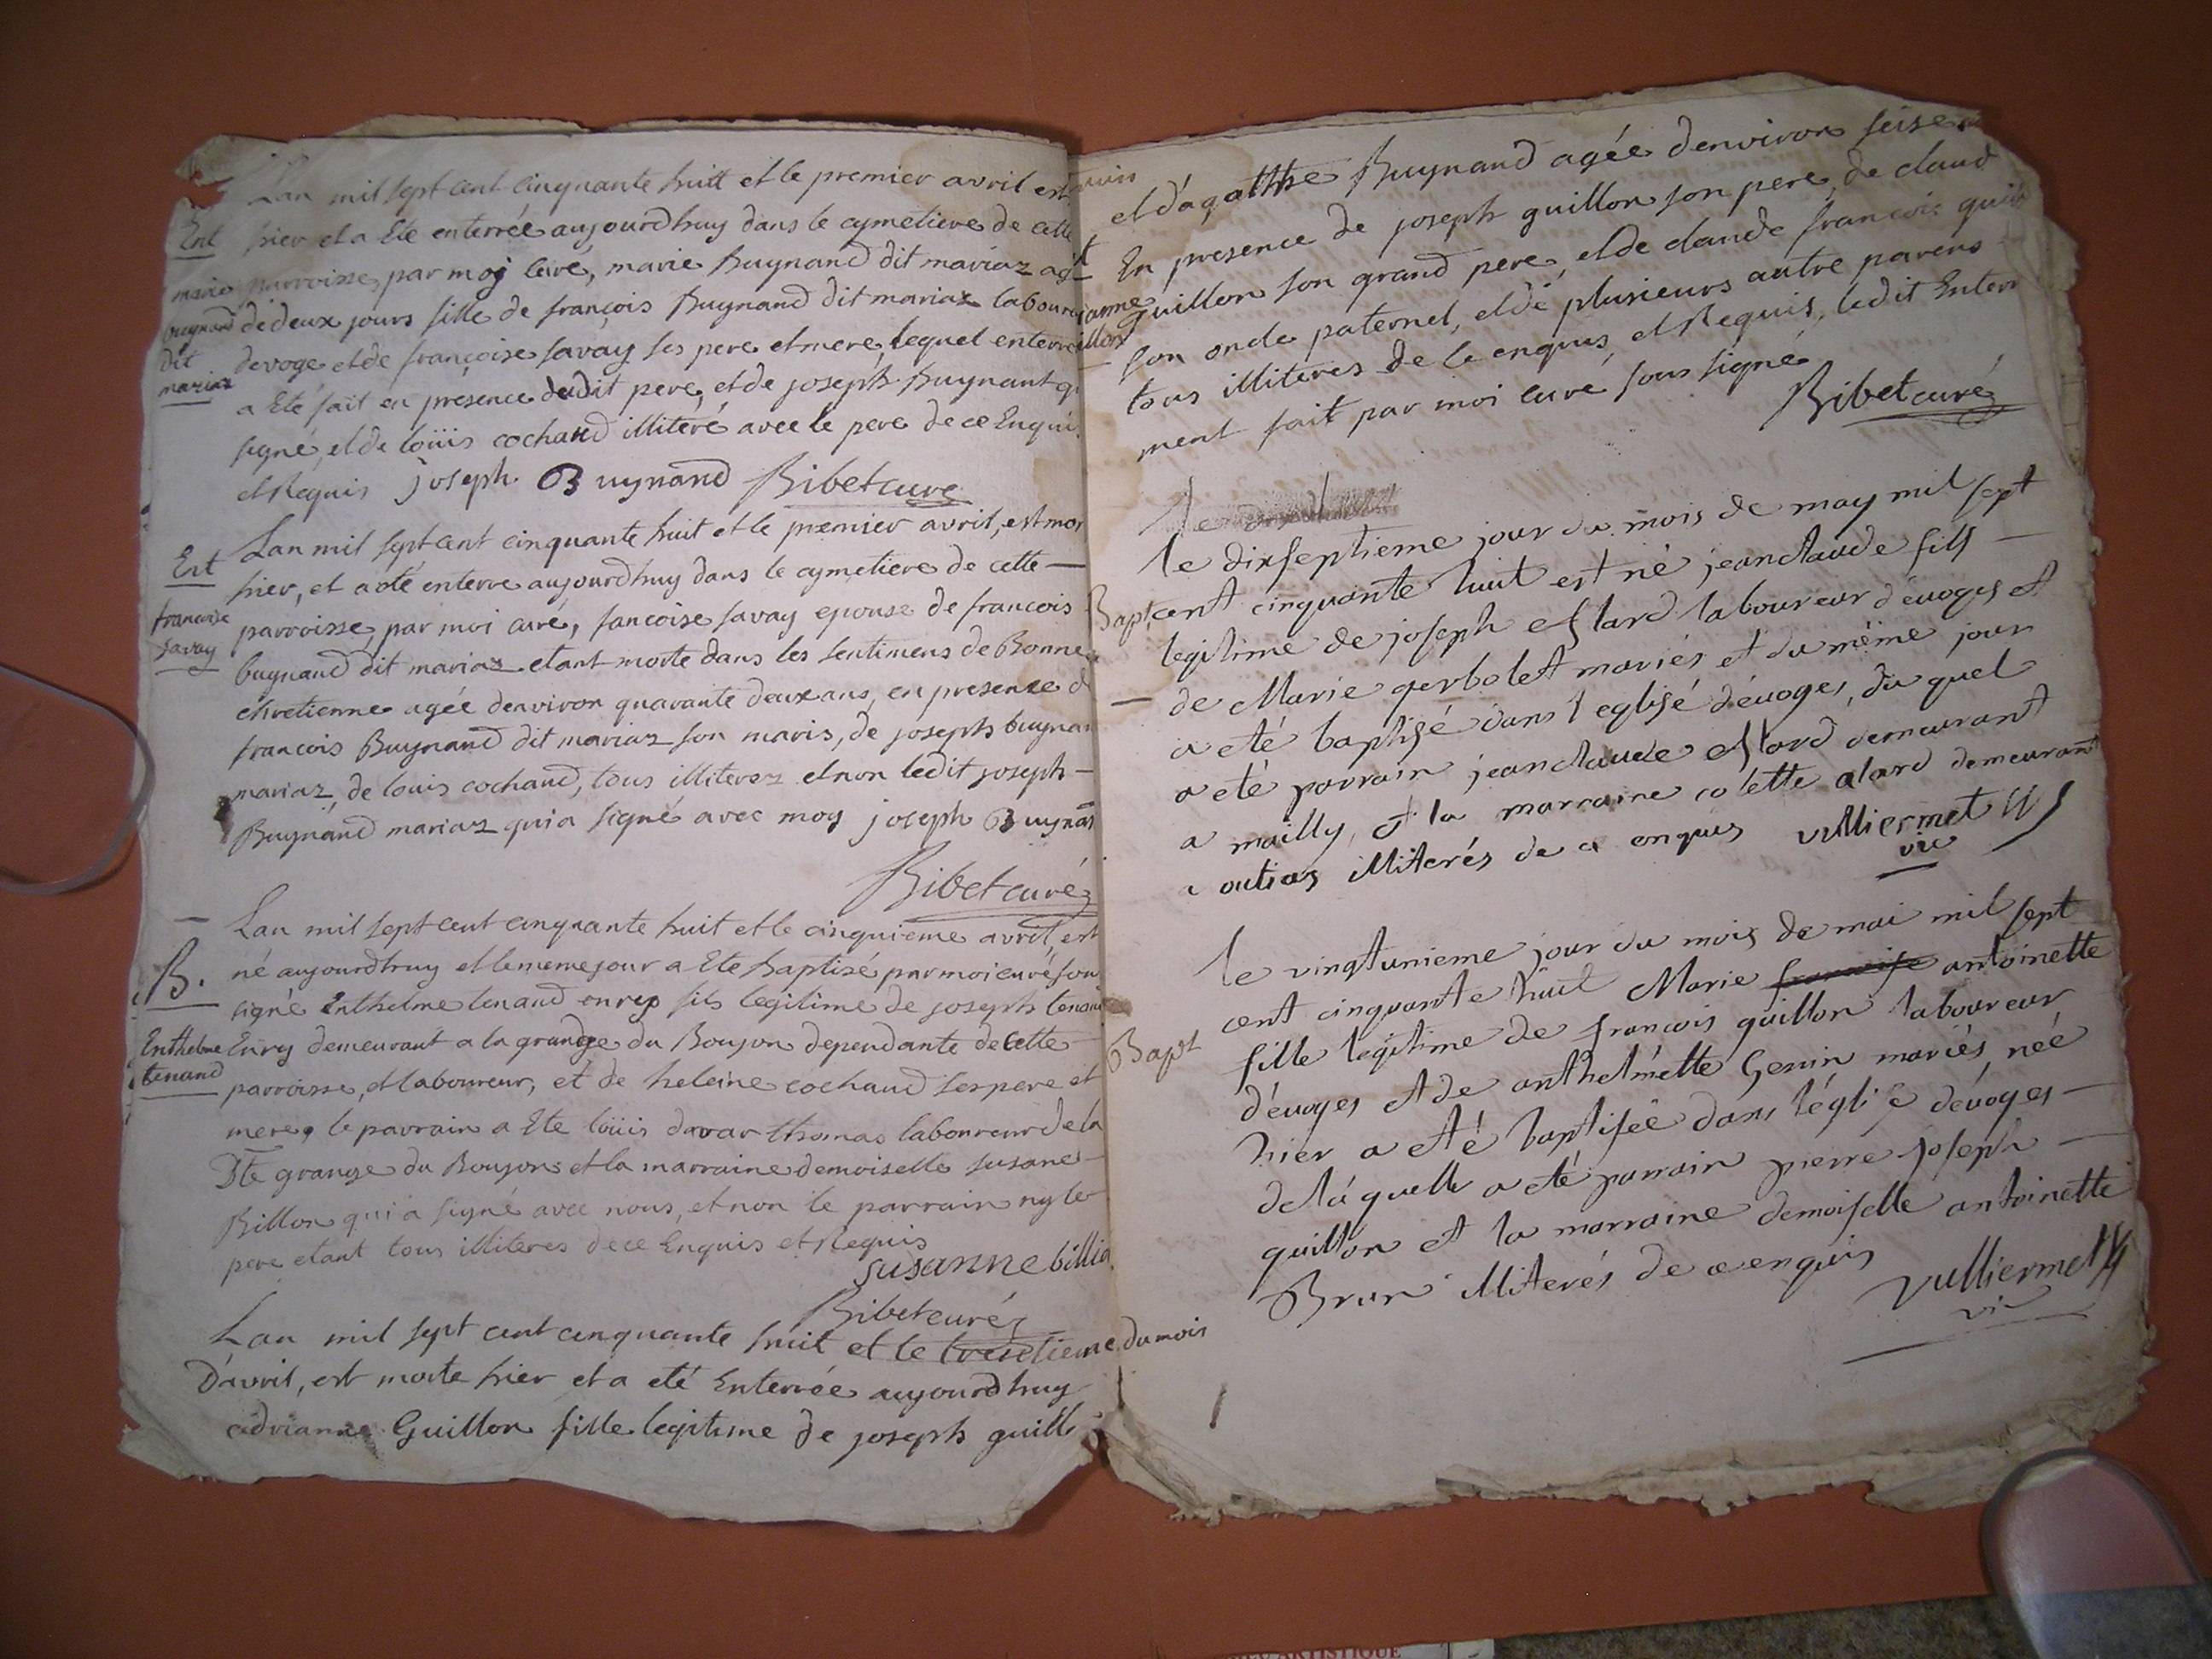 Lan mil sept cent cinquante huit et le premier avril est
Ent
hier et a Ete enterrée aujourdhuy dans le cymetiere de cette
marie
parroisse, par moy curé, marie Buynand dit mariaz ag
buynand
de deux jours fille de françois Buynand dit mariaz laboure
dit
devoge et de françoise savay ses pere et mere, lequel enterre
mariaz
a Eté fait en presence dudit pere, et de joseph Buynant q
signé, et de loüis cochand illitéré avec le pere de ce Enqui
et Requis joseph Buynand Ribet curé
Lan mil sept cent cinquante huit et le premier avril, est mor
Ent
hier, et a été enterre aujourdhuy dans le cymetiere de cette —
francoise
savay
parroisse, par moi curé, fancoise savay epouse de francois
buynand dit mariaz etant morte dans les sentimens de Bonne
chretienne agée denviron quarante deux ans, en presence d
francois Buynand dit mariaz son maris, de joseph buynan
mariaz, de louis cochand, tous illiterez et non ledit joseph —
Buynand mariaz qui a signé avec moy joseph Buynan
Ribet curé
— Lan mil sept cent cinquante huit et le cinquieme avril, est
B.
né aujourdhuy et le meme jour a Ete baptizé par moi curé sou
signé Enthelme tenand enrey fils legitime de joseph tenan
Enthelme
tenand
Enrey demeurant a la grange du Boujon dependante de Cette
parroisse, et laboureur, et de heleine cochand ses pere et
mere, le parrain a Ete loüis davar thomas laboureur de la
Dte grange du Boujon et la marraine demoiselle susane —
Billon qui a signé avec nous, et non le parrain ny le
pere etant tous illiteres de ce Enquis et Requis
susanne billio
Ribet curé
Lan mil sept cent cinquante huit et le trentieme du mois
Davril, est morte hier et a eté Enterrée aujourdhuy
adrianne Guillon fille legitime de joseph guill
et d'agathe Buynand agée denviron seise
En presence de joseph guillon son pere, de claud
guillon son grand pere, et de claude francois guil
son oncle paternel, et de plusieurs autre parens —
tous illiteres de ce enquis, et Requis, ledit Enterr
ment fait par moi curé sous signé
Ribet curé
le dixseptieme jour du mois de may mil sept
Bapt
cent cinquante huit est né jeanclaude fils —
legitime de joseph estard laboureur d'évoges et
— de Marie gerbolet mariés et du même jour
a eté baptisé dans l'eglise d'évoges, du quel
a eté parrain jeanclaude estard demeurant
a mailly, et la marraine colette alard demeurant
a outias illiterés de ce enquis vulliermet
vic
le vingtunieme jour du mois de mai mil sept
cent cinquante huit Marie francoise antoinette
Bapt
fille legitime de francois guillon laboureur
d'évoges et de anthelmette Genin mariés, née
hier a eté baptisée dans l'église d'évoges —
de laquelle a eté parrain pierre joseph —
guillon et la marraine demoiselle antoinette
Brun illiterés de ce enquis vulliermet
vic
ARTISTIQUE